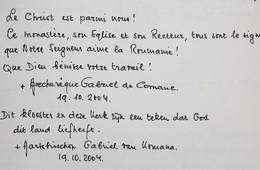 Le Christ est parmi nous!
Ce monastère, son Eglise et son Recteur, tous sont le signe
que Notre Seigneur aime la Roumanie!
Que Dieu bénisse votre travail!
+ Archevêque Gabriel de Comane
19.10.2004.
Dit klooster en deze Kerk zijn een teken dat God
dit land liefheeft.
+ Aartsbisschop Gabriel van Komana.
19.10.2004.